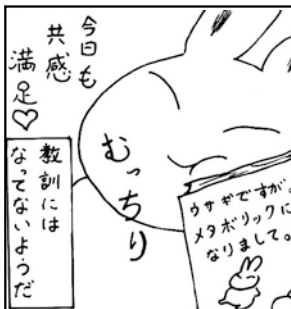 今日も
共感
満足♡
教訓には
なってないようだ
むっちり
ウサギですが。
メタボリックに
なりまして。